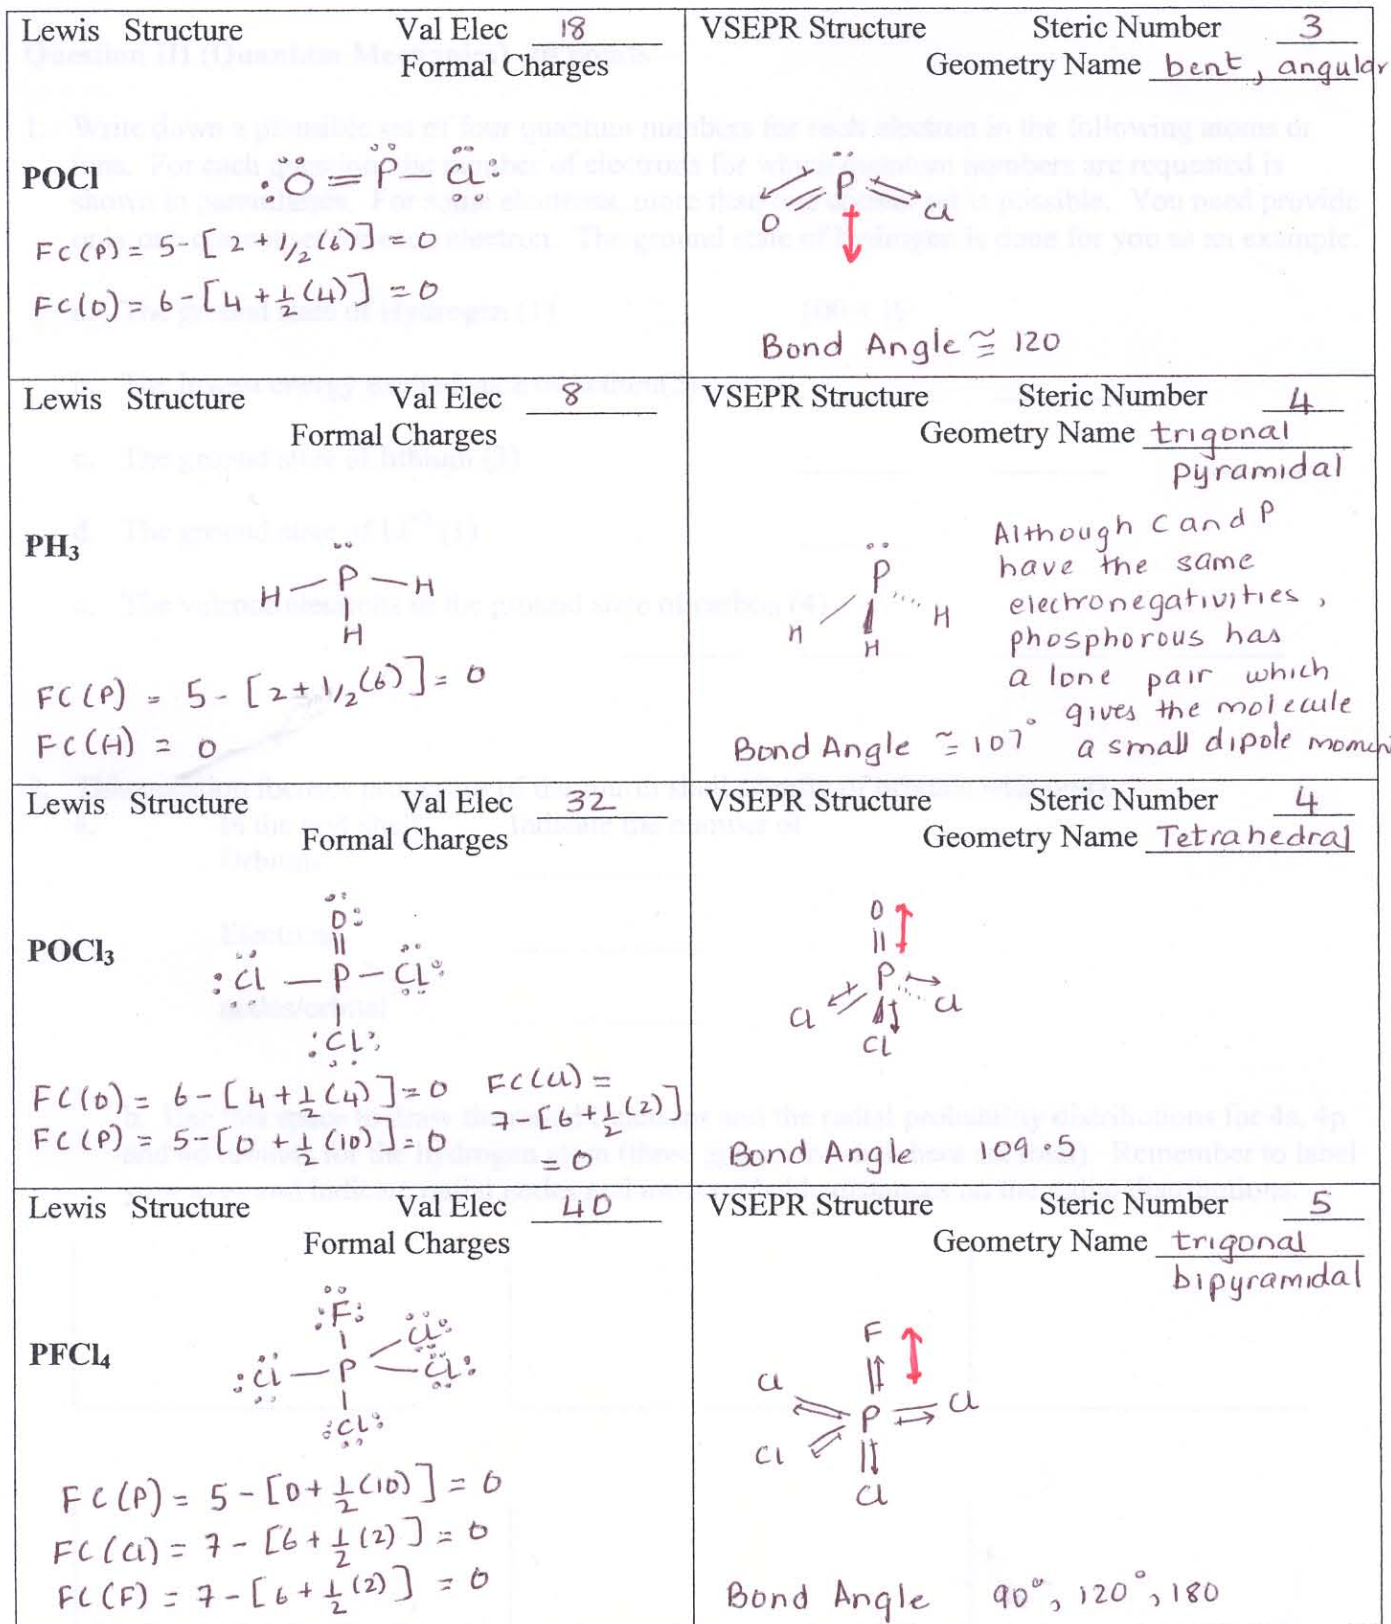 Lewis Structure Val Elec 18
Formal Charges
POCl
:O=P–Cl:
FC(P) = 5 - [2 + 1/2 (6)] = 0
FC(O) = 6 - [4 + 1/2 (4)] = 0
VSEPR Structure Steric Number 3
Geometry Name bent, angular
P
O Cl
Bond Angle ≅ 120
Lewis Structure Val Elec 8
Formal Charges
PH₃
H–P–H
H
FC(P) = 5 - [2 + 1/2 (6)] = 0
FC(H) = 0
VSEPR Structure Steric Number 4
Geometry Name trigonal
pyramidal
P
H H
H
Although C and P
have the same
electronegativities,
phosphorous has
a lone pair which
gives the molecule
a small dipole moment
Bond Angle ≅ 107°
Lewis Structure Val Elec 32
Formal Charges
POCl₃
O:
:Cl–P–Cl:
:Cl:
FC(O) = 6 - [4 + 1/2 (4)] = 0
FC(P) = 5 - [0 + 1/2 (10)] = 0
FC(Cl) =
7 - [6 + 1/2 (2)]
= 0
VSEPR Structure Steric Number 4
Geometry Name Tetrahedral
O
P
Cl Cl
Cl
Bond Angle 109.5
Lewis Structure Val Elec 40
Formal Charges
PFCl₄
:F:
Cl:
:Cl–P–Cl:
:Cl:
FC(P) = 5 - [0 + 1/2 (10)] = 0
FC(Cl) = 7 - [6 + 1/2 (2)] = 0
FC(F) = 7 - [6 + 1/2 (2)] = 0
VSEPR Structure Steric Number 5
Geometry Name trigonal
bipyramidal
F
Cl
P Cl
Cl
Cl
Bond Angle 90°, 120°, 180